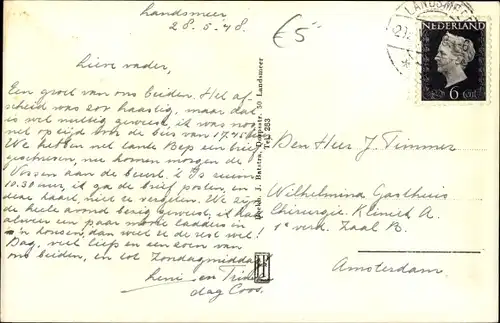 Landsmeer
28.5.'48.
€5
LANDSMEER
NEDERLAND
6 cent
Lieve vader,
Een groet van ons beiden. Het af-
scheid was zoo haastig, maar dat
is wel nuttig geweest, ik was nog
net op tijd voor de bus van 17.45
We hebben net tante Bep een brief
geschreven, nu komen morgen de
Vossen aan de beurt. 't Is ruim
10.30 uur, ik ga de brief posten, en
deze kaart, niet te vergeten. We zijn
de heele avond bezig geweest, ik had
alweer een paar mooie ladders in
m'n kousen, dan weet u de rest wel!
Dag, veel liefs en een zoen van
ons beiden, en tot Zondagmiddag
Leni en
dag Coos.
J. Batstra, Dorpsstr. 50 Landsmeer
Tel. 253
Den Heer J. Timmer
Wilhelmina Gasthuis
Chirurgie Kliniek A.
1e verd. Zaal B.
Amsterdam.